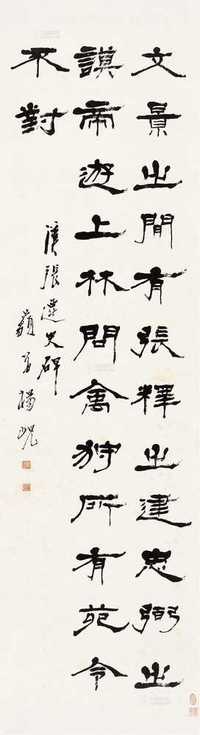 文景之間有張釋之建忠弼之
謨帝遊上林問禽狩所有苑令
不對
漢張遷史碑
藐翁楊峴